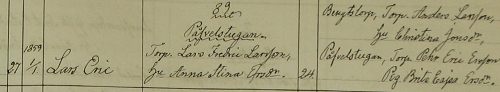 89
Påfvelstugan.
27 1859 1/1 Lars Eric
Torp. Lars Fredric Larsson,
Hu Anna Stina Ersdr. 24.
Bengtstorp, Torp. Anders Larsson,
Hu Christina Jonsdr,
Påfvelstugan, Torp. Pehr Eric Ersson
Pig. Brita Cajsa Ersdr.